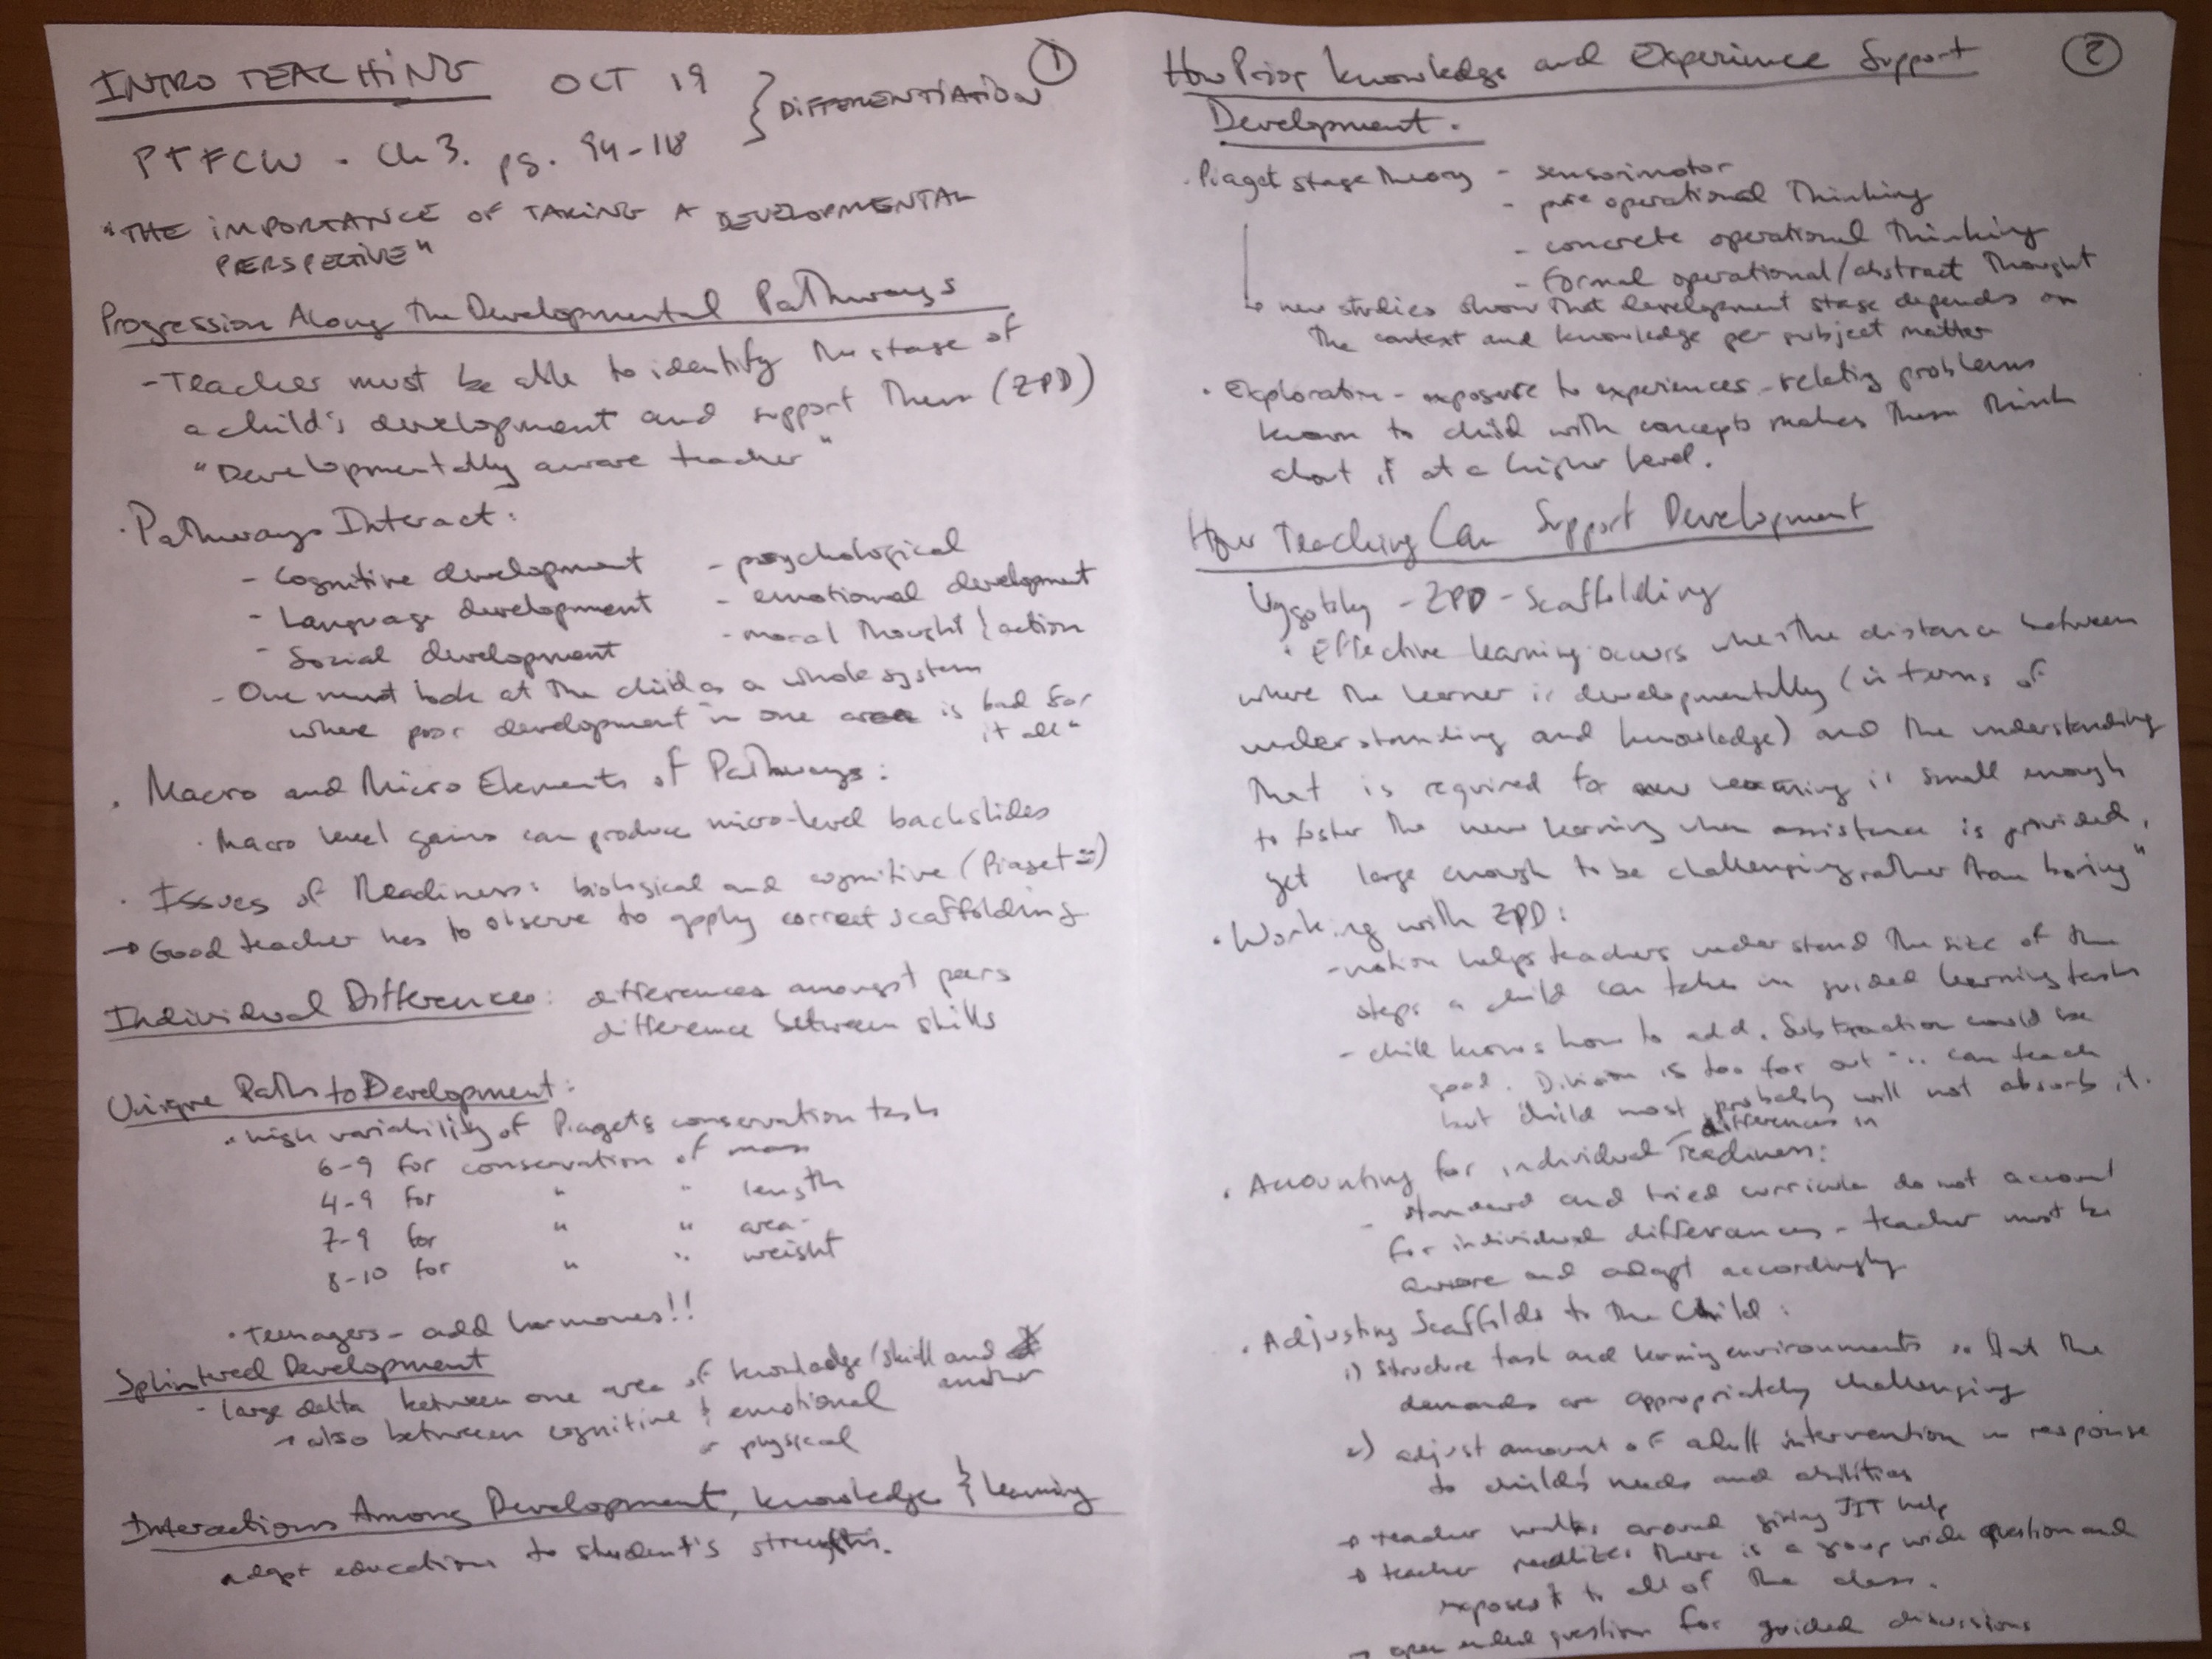 INTRO TEACHING OCT 19 } DIFFERENTIATION ①
PTFCW - Ch 3. pg. 94-118
"THE IMPORTANCE OF TAKING A DEVELOPMENTAL
PERSPECTIVE"
Progression Along The Developmental Pathways
- Teacher must be able to identify the stage of
a child's development and support them (ZPD)
"Developmentally aware teacher"
· Pathways Interact:
- Cognitive development - psychological
- Language development - emotional development
- Social development - moral thought & action
- One must look at the child as a whole system
where poor development in one area is bad for
it all"
· Macro and Micro Elements of Pathways:
· Macro level gains can produce micro-level backslides
· Issues of Readiness: biological and cognitive (Piaget)
→ Good teacher has to observe to apply correct scaffolding
Individual Differences: differences amongst peers
difference between skills
Unique Paths to Development:
· high variability of Piagets conservation tasks
6-9 for conservation of mass
4-9 for " " length
7-9 for " " area
8-10 for " " weight
· Teenagers - add hormones!!
Splintered Development
- large delta between one area of knowledge/skill and
another
→ also between cognitive & emotional
or physical
Interactions Among Development, knowledge & learning
adapt education to student's strengths.
How Prior Knowledge and Experience Support ②
Development.
· Piaget stage theory - sensorimotor
- pre operational Thinking
- concrete operational Thinking
- formal operational/abstract thought
↳ new studies show that development stage depends on
the context and knowledge per subject matter
· Exploration - exposure to experiences - relating problems
known to child with concepts makes them think
about it at a higher level.
How Teaching Can Support Development
Vygotsky - ZPD - Scaffolding
· Effective learning occurs when the distance between
where the learner is developmentally (in terms of
understanding and knowledge) and the understanding
that is required for new learning is small enough
to foster the new learning when assistance is provided,
yet large enough to be challenging rather than boring"
· Working with ZPD:
- notion helps teachers understand the size of the
steps a child can take in guided learning tasks
- child knows how to add. Subtraction could be
good. Division is too far out ... can teach
but child most probably will not absorb it.
differences in
· Accounting for individual readiness:
- standard and tried curricula do not account
for individual differences - teacher must be
aware and adapt accordingly
· Adjusting Scaffolds to the Child:
1) Structure task and learning environments so that the
demands are appropriately challenging
2) adjust amount of adult intervention in response
to child's needs and abilities
→ teacher walks around giving JIT help
→ teacher realizes there is a group wide question and
exposes it to all of the class.
→ open ended question for guided discussions